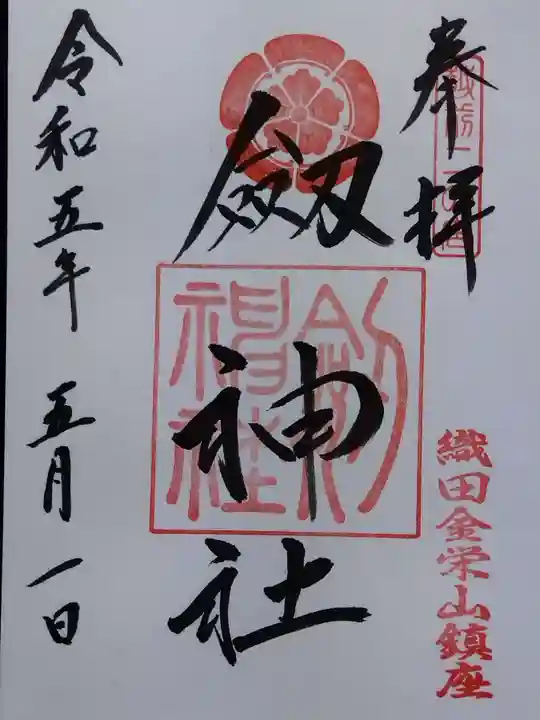 奉拝
越前二の宮
劔神社
劔神社
織田金栄山鎮座
令和五年五月一日